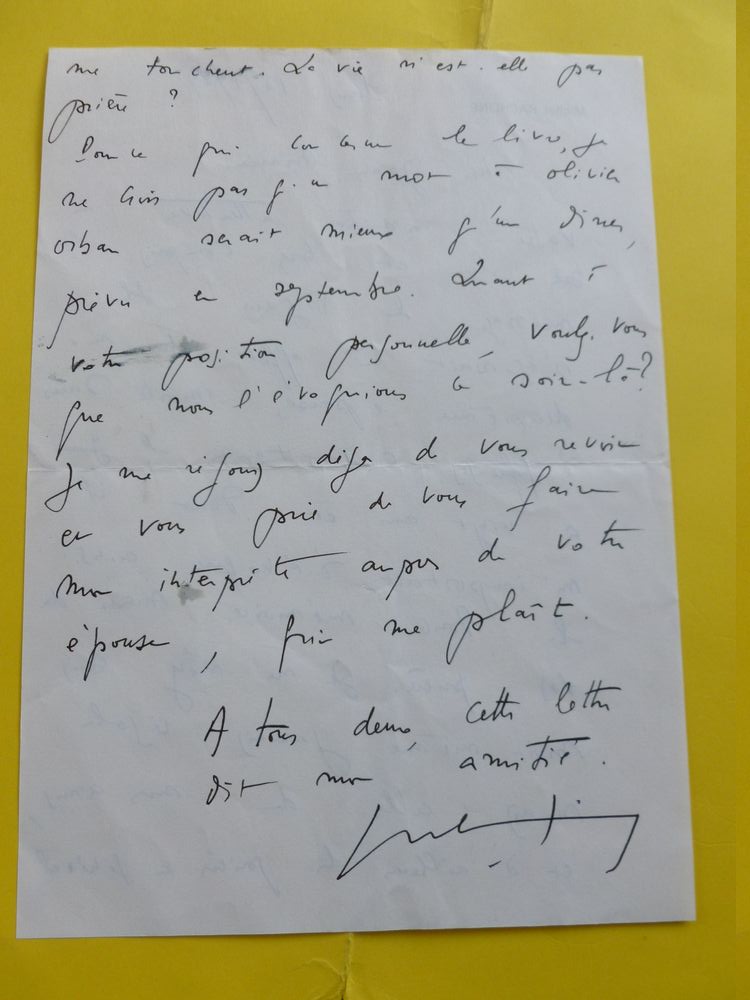 me touchent. La vie n'est-elle pas
prière ?
Pour ce qui concerne le livre, je
ne crois pas qu'un mot à olivier
orban serait mieux qu'un dîner,
prévu en septembre. Quant à
votre position personnelle, voulez-vous
que nous l'évoquions ce soir-là ?
Je me réjouis déjà de vous revoir
et vous prie de vous faire
mon interprète auprès de votre
épouse,
me plaît.
A tous deux, cette lettre
dit mon amitié.